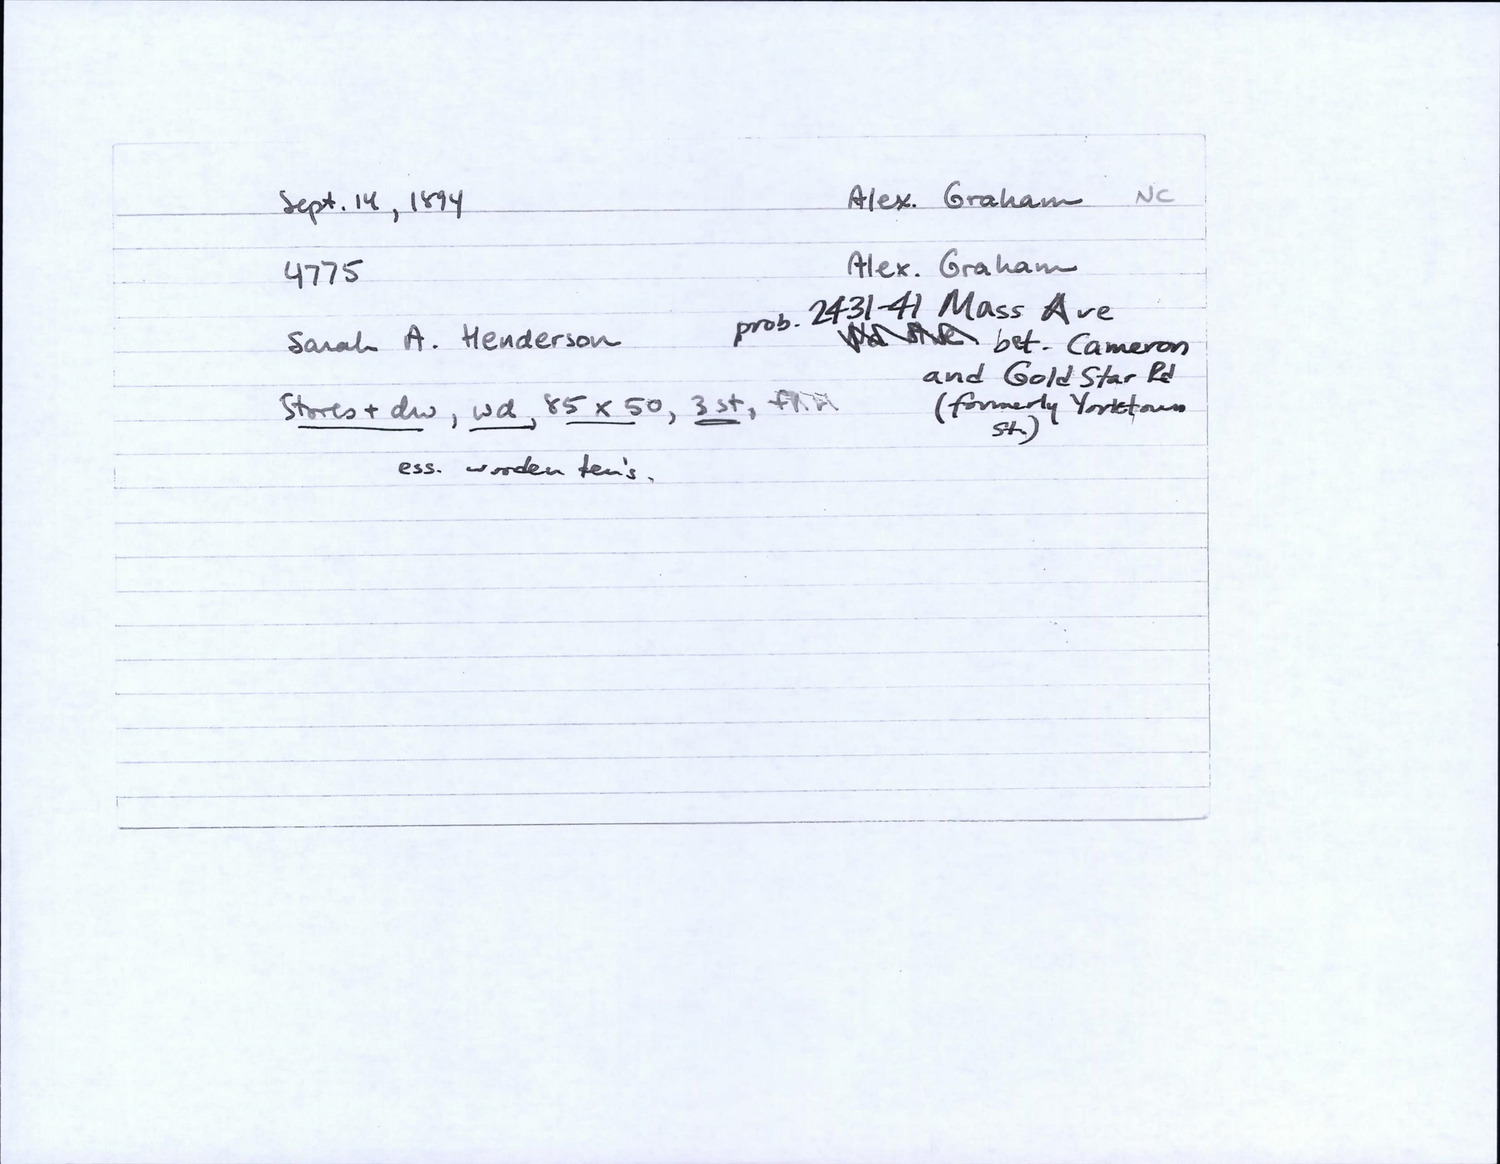 Sept. 14, 1894
Alex. Graham NC
4775
Alex. Graham
prob. 2431-41 Mass Ave
Sarah A. Henderson
bet. Cameron
and Gold Star Rd
(formerly Yorktown
St.)
Stores + dw, wd, 85 x 50, 3 st,
ess. wooden ten's.